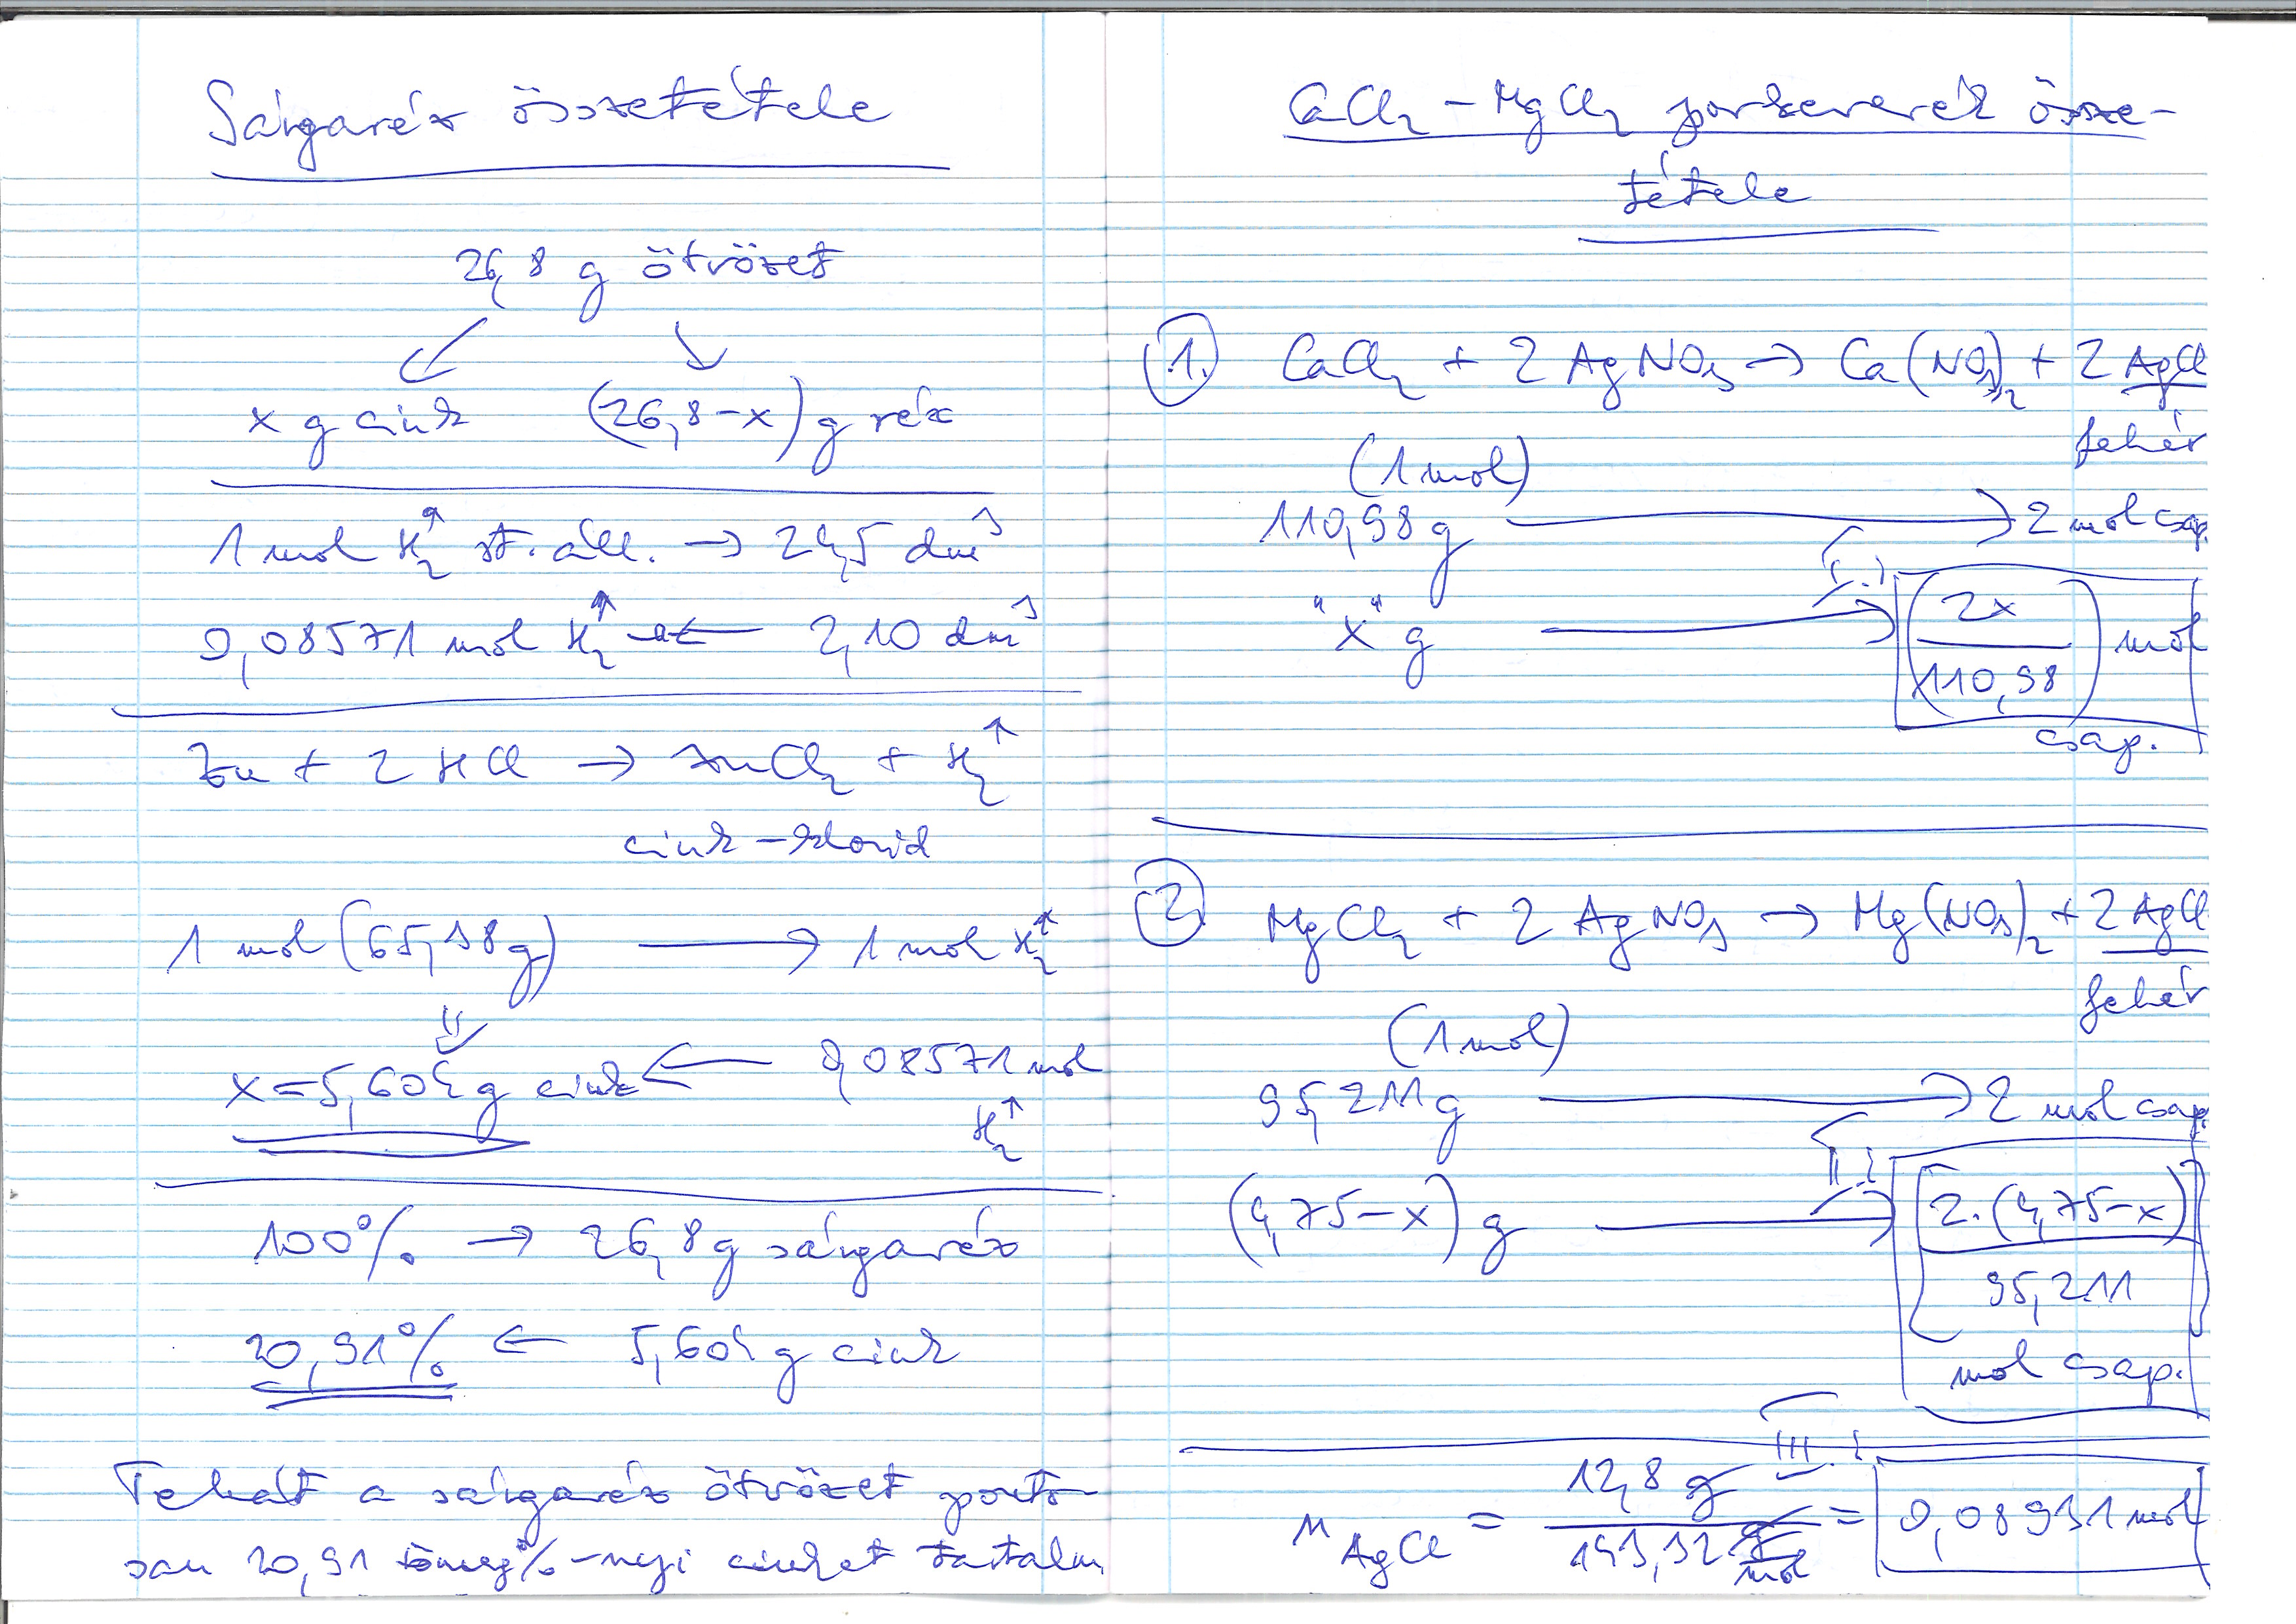 Sárgaréz összetétele
26,8 g ötvözet
x g cink (26,8-x) g réz
1 mol H₂↑ st. áll. → 24,5 dm³
0,08571 mol H₂↑ ← 2,10 dm³
Zn + 2 HCl → ZnCl₂ + H₂↑
cink-klorid
1 mol (65,38g) → 1 mol H₂↑
x = 5,604 g cink ← 0,08571 mol
H₂↑
100% → 26,8 g sárgaréz
20,91% ← 5,604 g cink
Tehát a sárgaréz ötvözet ponto-
san 20,91 tömeg%-nyi cinket tartalm
CaCl₂ - MgCl₂ porkeverék össze-
tétele
1. CaCl₂ + 2 AgNO₃ → Ca(NO₃)₂ + 2 AgCl
fehér
(1 mol)
110,98 g → 2 mol csap.
I.!
"x" g → (2x / 110,98) mol
csap.
2. MgCl₂ + 2 AgNO₃ → Mg(NO₃)₂ + 2 AgCl
fehér
(1 mol)
95,211 g → 2 mol csap.
II.!
(4,75-x) g → [2·(4,75-x) / 95,211]
mol csap.
III.!
n AgCl = 12,8 g / 143,32 g/mol = 0,08931 mol